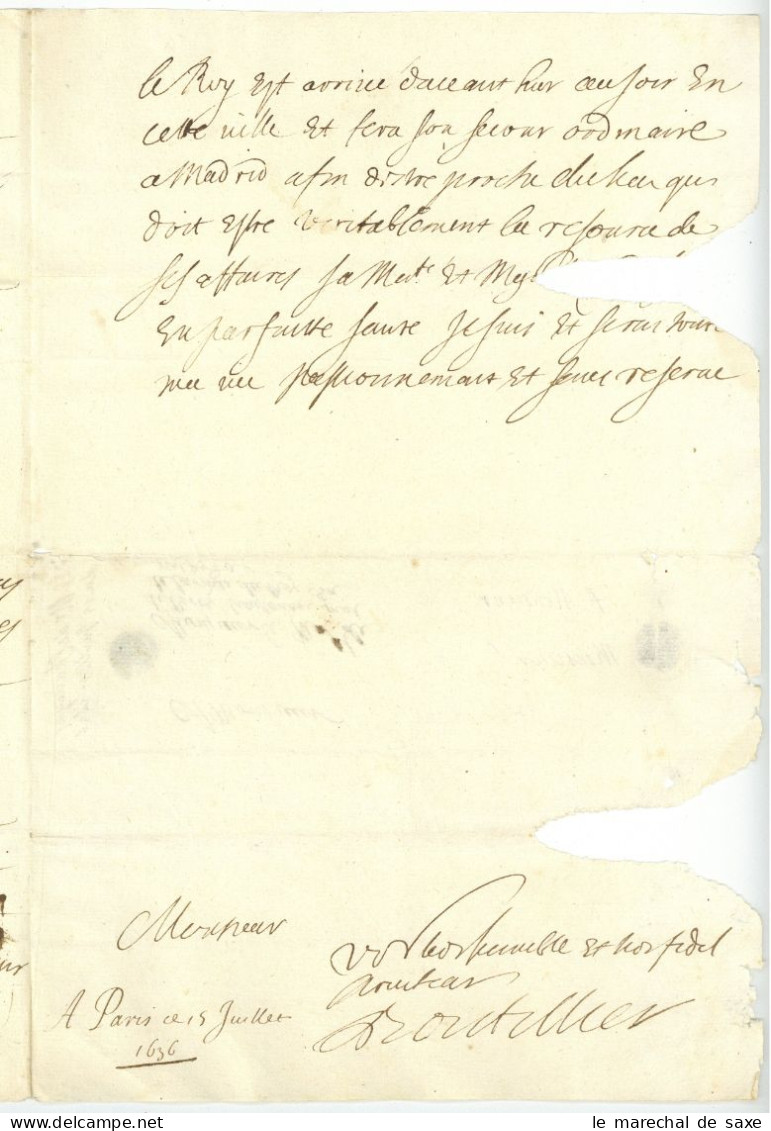 le Roy est arrivé davant hier au soir En
cette ville Et fera son sejour ordinaire
a Madrid afin d'estre proche du lieu qui
doit estre veritablement la resource de
ses affaires sa Ma.te Et
En parfaitte sante Je suis Et seray toute
ma vie passionnement Et sans reserve
Monsieur
Vos tres humble et tres fidel
serviteur
Bouthillier
A Paris ce 15 Juillet
1636
le marechal de saxe